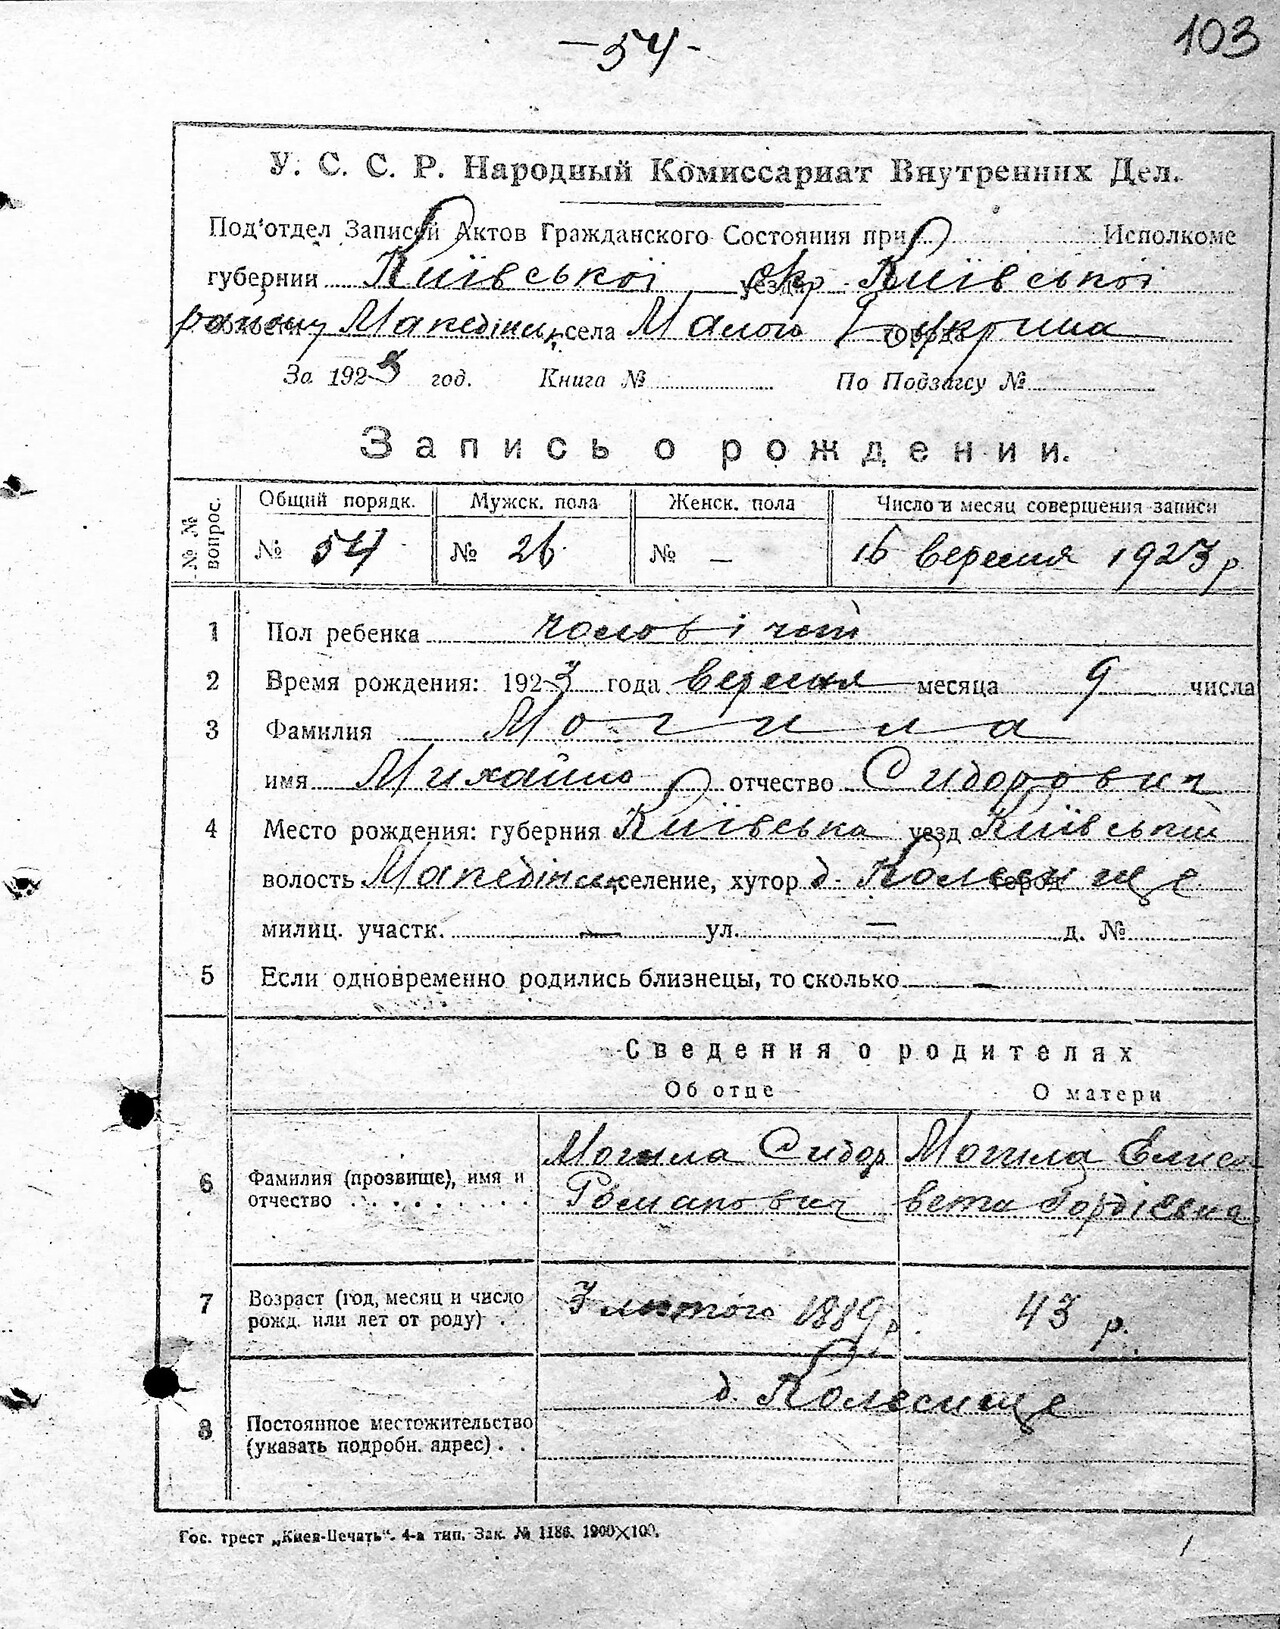 -54-
103
У. С. С. Р. Народный Комиссариат Внутренних Дел.
Под'отдел Записей Актов Гражданского Состояния при Исполкоме
губернии Київської окр Київської
району Македінськ села Малого Букрина
За 1923 год. Книга № По Подзагсу №
Запись о рождении.
№ № вопрос. Общий порядк. Мужск. пола Женск. пола Число и месяц совершения записи
№ 54 № 26 № — 16 вересня 1923 р.
1 Пол ребенка чоловічий
2 Время рождения: 1923 года вересня месяца 9 числа
3 Фамилия Могила
имя Михайло отчество Сидорович
4 Место рождения: губерния Київська уезд Київський
волость Македінськ селение, хутор д. Колесище
милиц. участк. — ул. — д. №
5 Если одновременно родились близнецы, то сколько —
Сведения о родителях
Об отце О матери
6 Фамилия (прозвище), имя и отчество Могила Сидор Романович Могила Елисавета Гордієвна
7 Возраст (год, месяц и число рожд. или лет от роду) 3 лютого 1889 р. 43 р.
8 Постоянное местожительство (указать подробн. адрес) д. Колесище
Гос. трест „Киев-Печать". 4-я тип. Зак. № 1186. 1900×100.